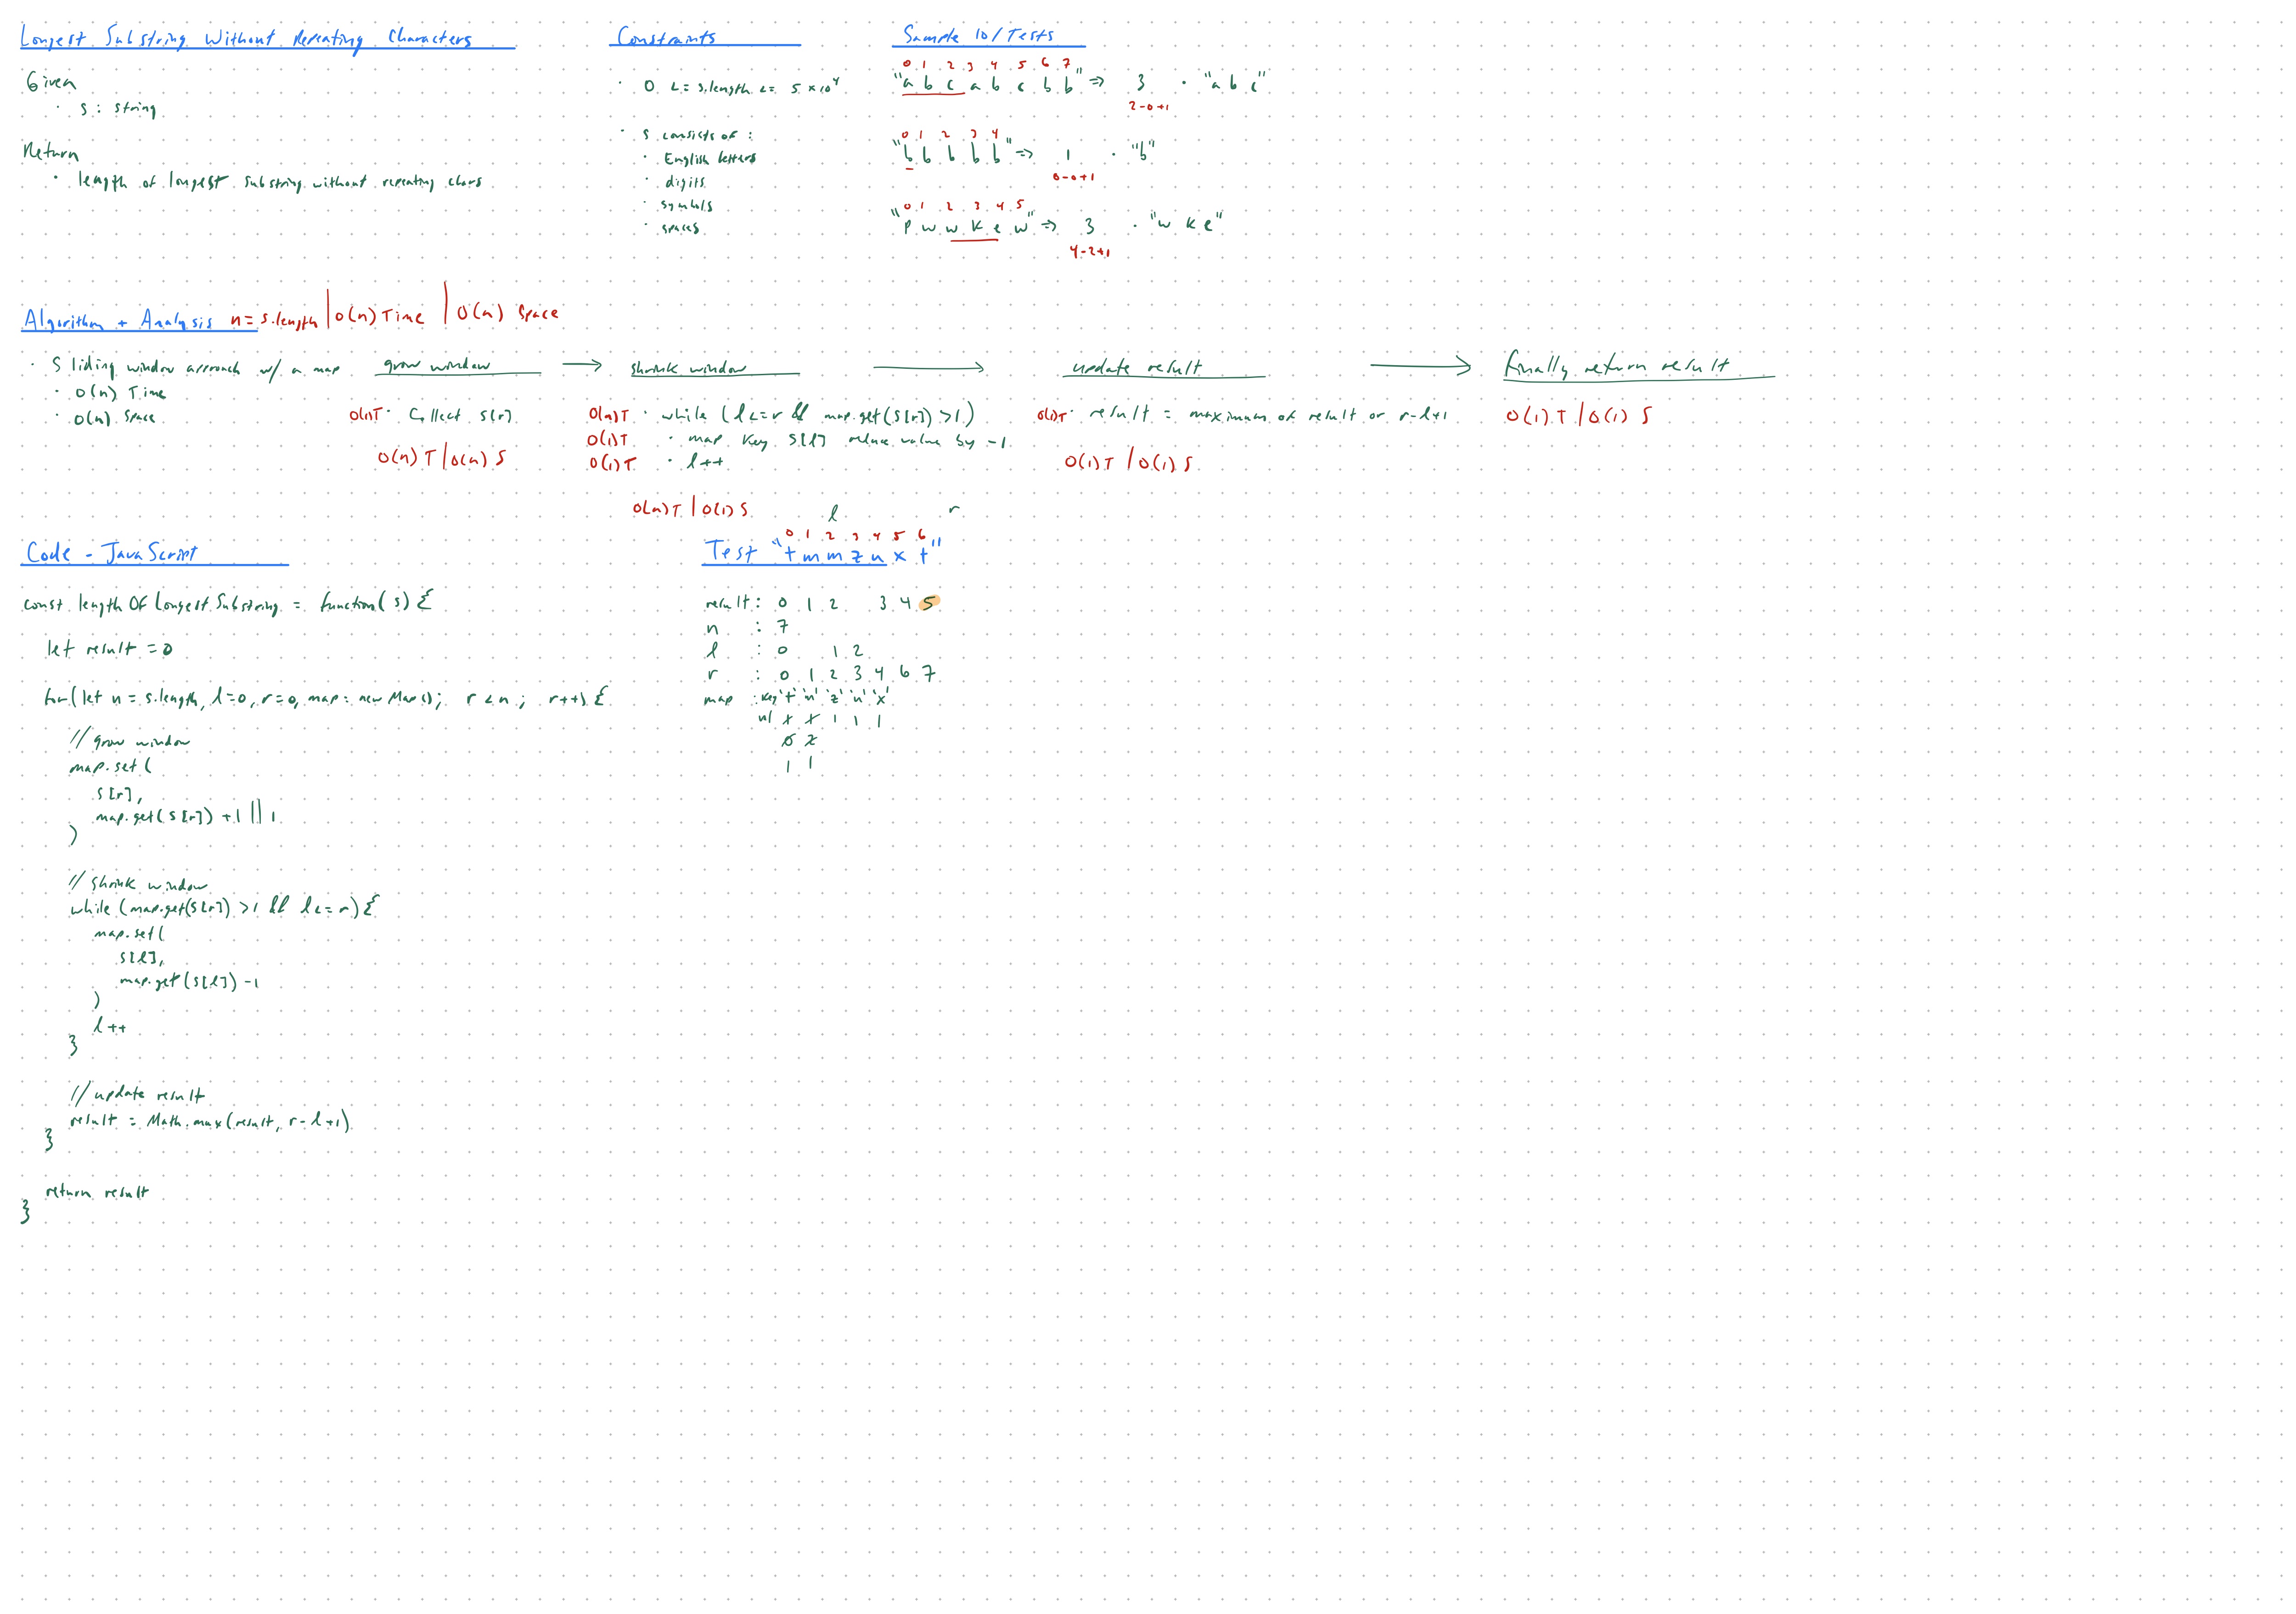 Longest Substring Without Repeating Characters
Given
· s : string
Return
· length of longest substring without repeating chars
Constraints
· 0 <= s.length <= 5 × 10⁴
· s consists of :
· English letters
· digits
· symbols
· spaces
Sample IO/Tests
0 1 2 3 4 5 6 7
"a b c a b c b b" => 3 · "a b c"
2-0+1
0 1 2 3 4
"b b b b b" => 1 · "b"
0-0+1
0 1 2 3 4 5
"p w w k e w" => 3 · "w k e"
4-2+1
Algorithm + Analysis n = s.length | O(n) Time | O(n) Space
· Sliding window approach w/ a map
· O(n) Time
· O(n) Space
grow window →
O(1)T · Collect s[r]
O(n) T | O(n) S
shrink window →
O(n)T · while (l <= r && map.get(s[r]) > 1)
O(1)T · map key s[l] reduce value by -1
O(1)T · l++
O(n)T | O(1) S
update result →
O(1)T · result = maximum of result or r-l+1
O(1) T | O(1) S
finally return result
O(1) T | O(1) S
Code - JavaScript
const lengthOfLongestSubstring = function(s) {
let result = 0
for(let n = s.length, l=0, r=0, map = new Map(); r < n ; r++) {
// grow window
map.set(
s[r],
map.get(s[r]) +1 || 1
)
// shrink window
while (map.get(s[r]) >1 && l <= r) {
map.set(
s[l],
map.get(s[l]) -1
)
l++
}
// update result
result = Math.max(result, r-l+1)
}
return result
}
l r
0 1 2 3 4 5 6
Test "t m m z u x t"
result : 0 1 2 3 4 5
n : 7
l : 0 1 2
r : 0 1 2 3 4 6 7
map : key 't' 'm' 'z' 'u' 'x'
1 1 1 1 1
0 2
1 1